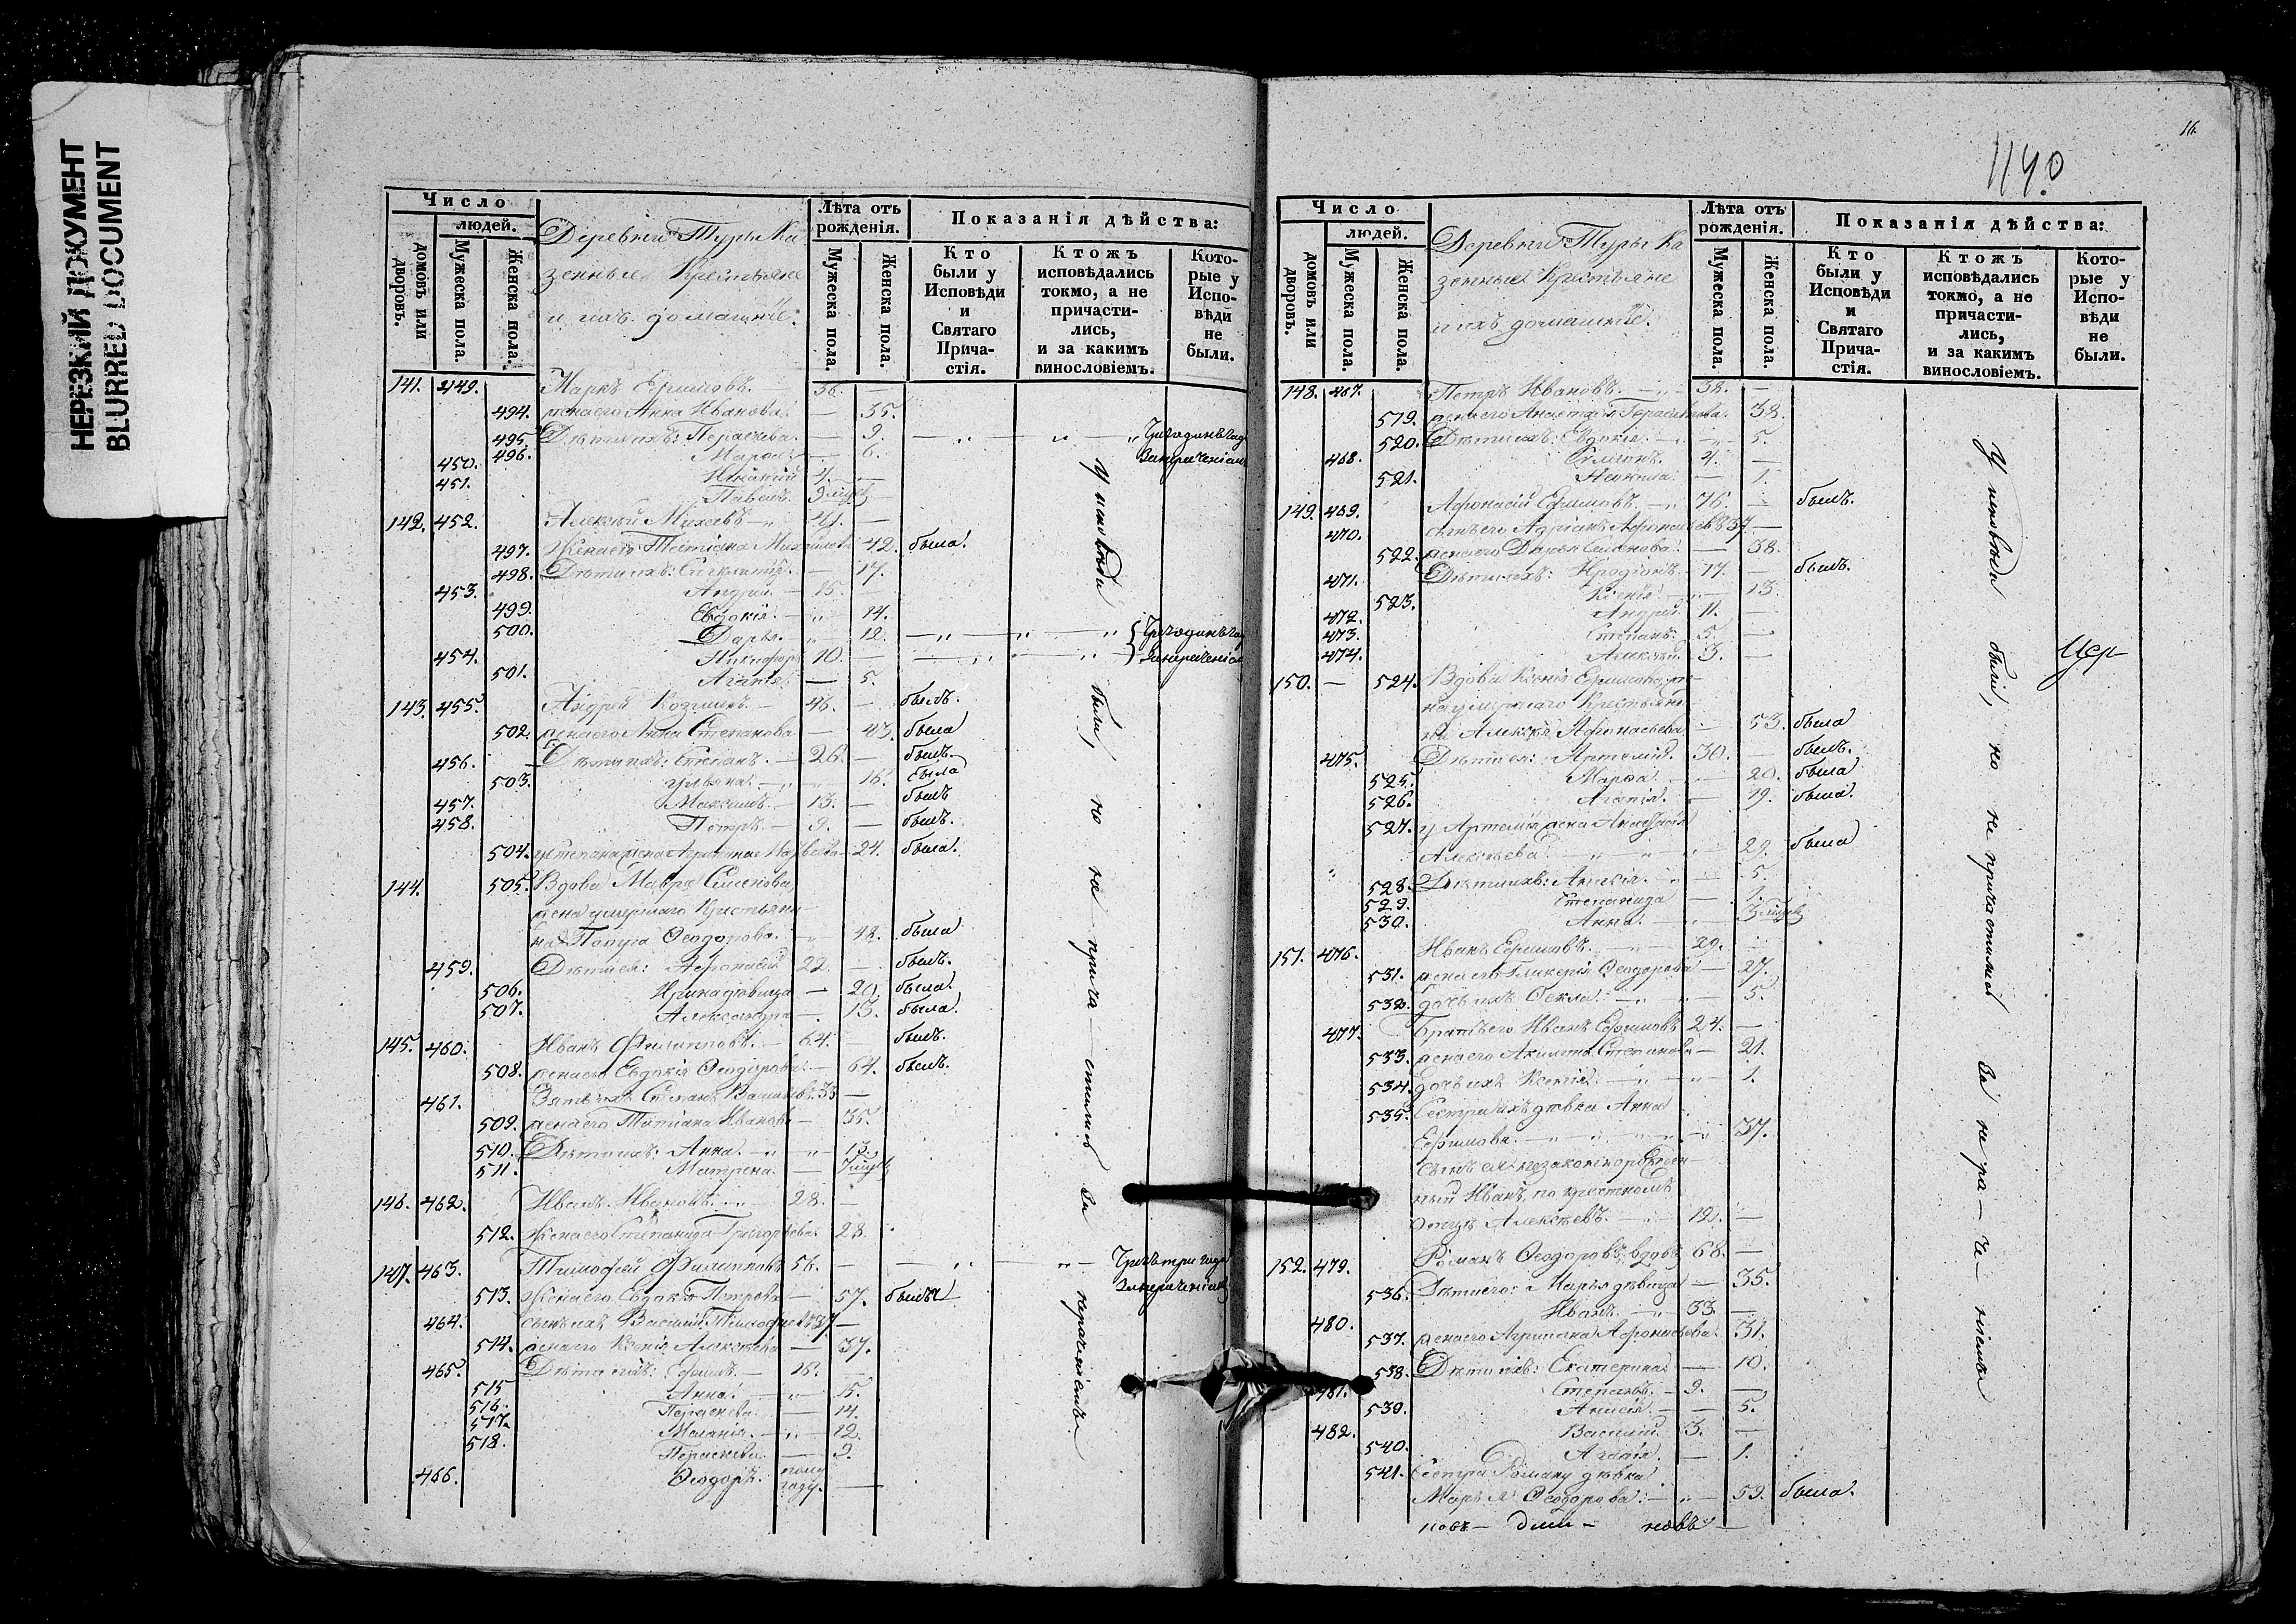 НЕРЕЗКИЙ ДОКУМЕНТ
BLURRED DOCUMENT
Число
людей.
домовъ или дворовъ.
Мужеска пола.
Женска пола.
Деревни Туры Ка
зенные Крестьяне
и ихъ домашніе:
Лѣта отъ рожденія.
Мужеска пола.
Женска пола.
Показанія дѣйства:
Кто были у Исповѣди и Святаго Прича-стія.
Ктожъ исповѣдались токмо, а не причасти-лись, и за какимъ винословіемъ.
Кото-рые у Испо-вѣди не были.
141. 449. Маркъ Ефимовъ. 36. —
494. жена его Анна Иванова. — 35.
495. Дѣти ихъ: Параскева. — 9.
496. Марѳа — 6.
450. 4. —
451. Павелъ.
142. 452. Алексѣй Михеевъ — 41. —
497. Жена его Татіана Михайлова 42. была.
498. Дѣти ихъ: — 17.
453. Андрей. — 15. —
499. Евдокія. — 14.
500. Дарья. — 12.
454. Никифоръ 10. —
501. Агапія. — 5.
143. 455. Андрей Козминъ. — 46. — былъ.
502. жена его Анна Степанова — 43. была
456. Дѣти ихъ: Степанъ. — 26. — былъ.
503. Ульяна. — 16. была
457. Максимъ. — 13. — былъ
458. Петръ. — 9. — былъ.
504. у Степана жена — 24. была.
144. 505. Вдова Мавра Семенова,
жена умершаго Крестьяни
на Ѳеодорова. 48. была
459. Дѣти ея: Афонасій 22. — былъ.
506. Ирина дѣвица — 20. была.
507. Александра — 13. была.
145. 460. Иванъ Филипповъ. — 64. былъ.
508. жена его Евдокія Ѳеодорова. — 64. былъ.
461. Зять ихъ 35 —
509. жена его Татіана Иванова — 35.
510. Дѣти ихъ: Анна. — 13.
511. Матрена. —
146. 462. Иванъ Ивановъ. 28. —
512. Жена его Степанида Григорьева. 28.
147. 463. Тимофей Филипповъ 56. —
513. Жена его Евдокія Петрова — 57. была
464. сынъ ихъ Василій Тимофеевъ 37 —
514. жена его Ксенія Алексѣева — 37.
465. Дѣти ихъ: Ефимъ. — 16.
515 Анна. — 15.
516. Параскева. — 14.
517. Маланія. — 12.
518. Параскева. — 2.
466. Ѳеодоръ. полу
году. —
У исповѣди были, но не прича—стились за нераченіемъ
16
1140
Число
людей.
домовъ или дворовъ.
Мужеска пола.
Женска пола.
Деревни Туры Ка
зенные Крестьяне
и ихъ домашніе.
Лѣта отъ рожденія.
Мужеска пола.
Женска пола.
Показанія дѣйства:
Кто были у Исповѣди и Святаго Прича-стія.
Ктожъ исповѣдались токмо, а не причасти-лись, и за какимъ винословіемъ.
Кото-рые у Испо-вѣди не были.
148. 467. Петръ Ивановъ. 38. —
519. жена его Анастасія Герасимова. 38.
520. Дѣти ихъ: Евдокія. — 5.
468. 4. —
521. — 1.
149. 469. Афонасій Ефимовъ. 76. — былъ.
470. сынъ его Адріанъ Афонасьевъ 37 —
522. жена его Дарья Семенова. — 38.
471. Дѣти ихъ: Иродіонъ. — 17. — былъ.
523. Ксенія — 13.
472. Андрей. 11. —
473. Степанъ. 5. —
474. Алексѣй. 3. —
150. — 524. Вдова Ксенія Ефимова, же
на умершаго Крестьяни
на Алексѣя Афонасьева — 53. была
475. Дѣти ея: Артемій. 30. — былъ.
525. Марѳа. — 20. была
526. Агапія. — 19. была.
527. у Артемія жена Анастасія
Алексѣева. — 29. была
528. Дѣти ихъ: — 5.
529. Степанида — 1.
530. Анна. —
151. 476. Иванъ Ефимовъ. — 29.
531. жена его Гликерія Ѳеодорова — 27.
532. дочь ихъ Ѳекла. — 5.
477. Братъ его Иванъ Ефимовъ 24. —
533. жена его Акилина Степанова — 21.
534. дочь ихъ Ксенія. — 1.
535. Сестра ихъ дѣвка Анна
Ефимова. — 37.
сынъ ея незаконнорожден
ный Иванъ, по крестному
отцу Алексѣевъ. — 12. —
152. 479. Романъ Ѳеодоровъ, вдовъ 68. —
536. Дѣти его: Марья дѣвица — 35.
480. Иванъ. — 33. —
537. жена его Агрипина Афонасьева. 31.
538. Дѣти ихъ: Екатерина — 10.
481. Степанъ. — 9. —
539. Анисія. — 5.
482. Василій. 3. —
540. Агапія. — 1.
541. Сестра Роману дѣвка
Марья Ѳеодорова: — 59. была.
У исповѣди были, но не причастились за нера—че—ніемъ